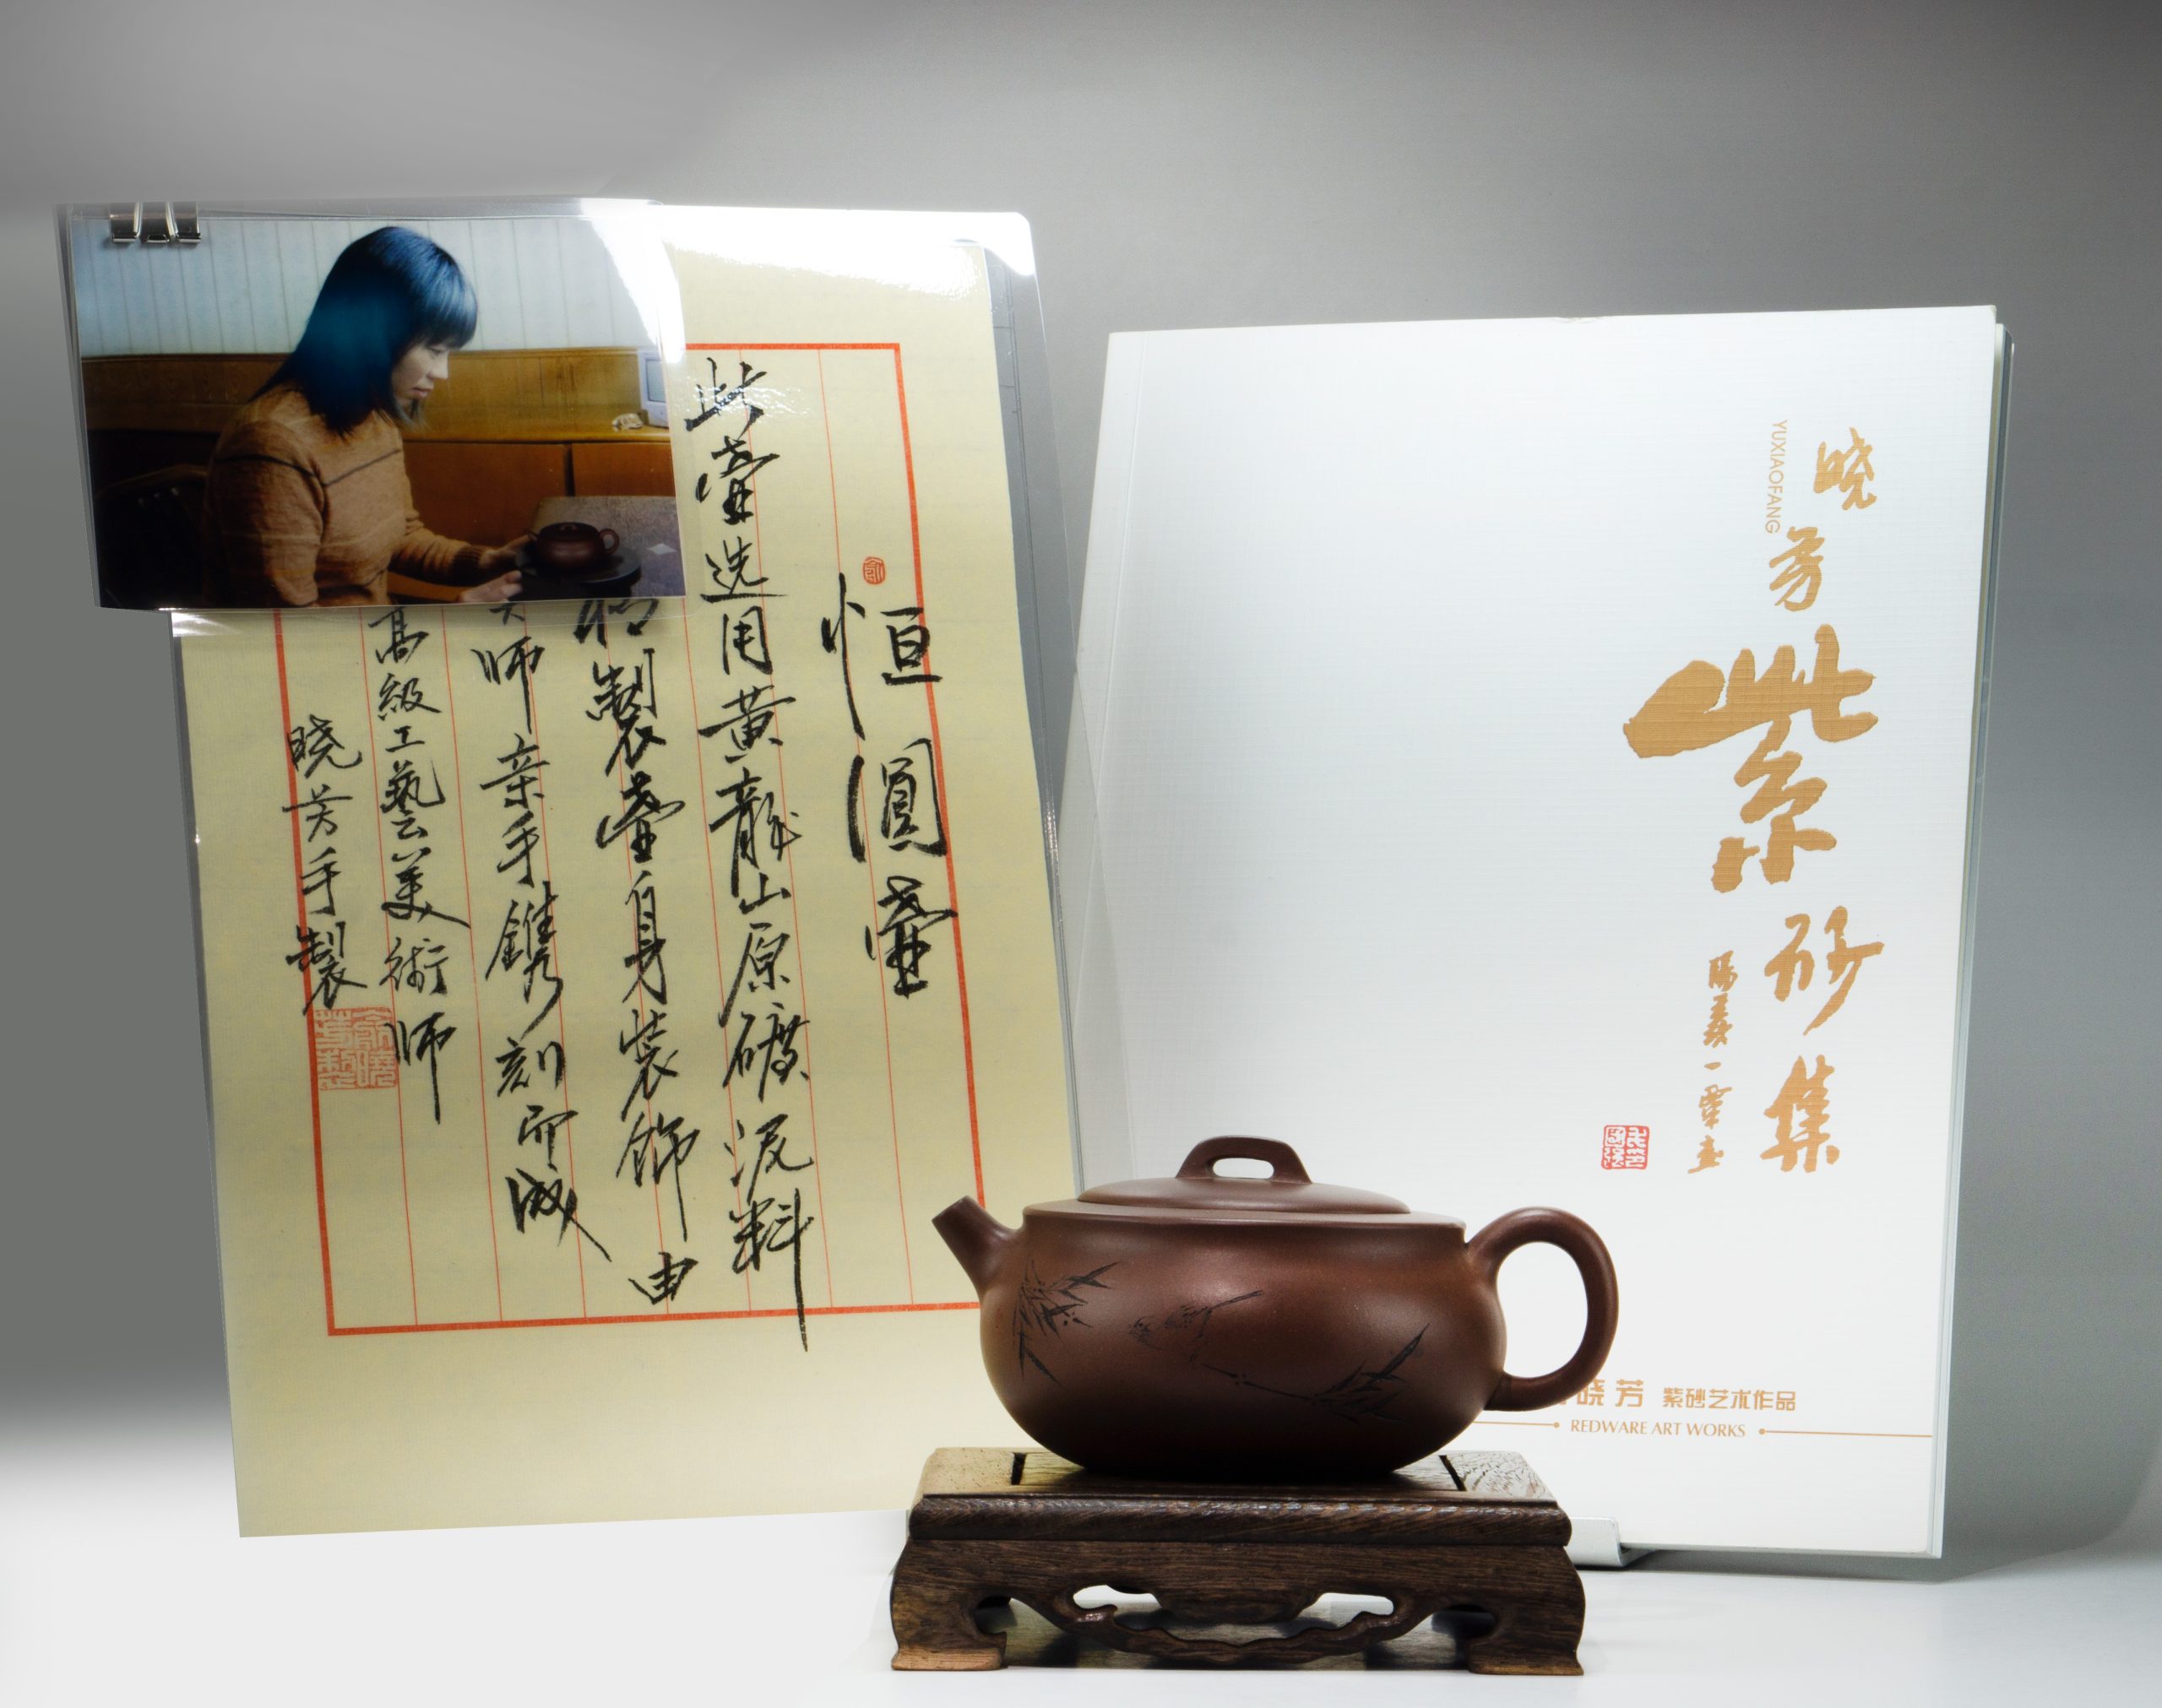 恒圓壺
此壺選用黃龍山原礦泥料
精製壺身裝飾由
師亲手鐫刻而成
高級工藝美術師
晓芳手製
晓芳
YUXIAOFANG
紫砂集
晓芳 紫砂艺术作品
REDWARE ART WORKS